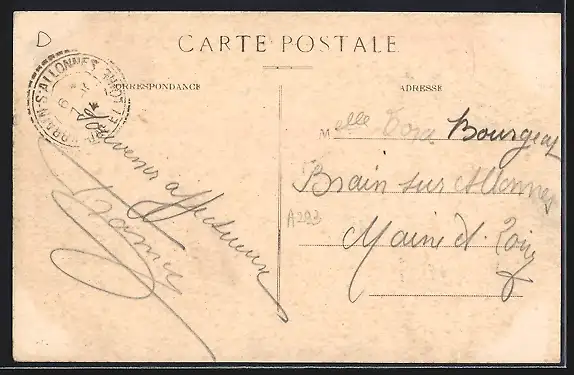 D
CARTE POSTALE
CORRESPONDANCE
ADRESSE
BRAIN-S-ALLONNES
Souvenir affectueux
Melle Dora Bourgeais
Brain sur Allonnes
A293
Maine et Loire